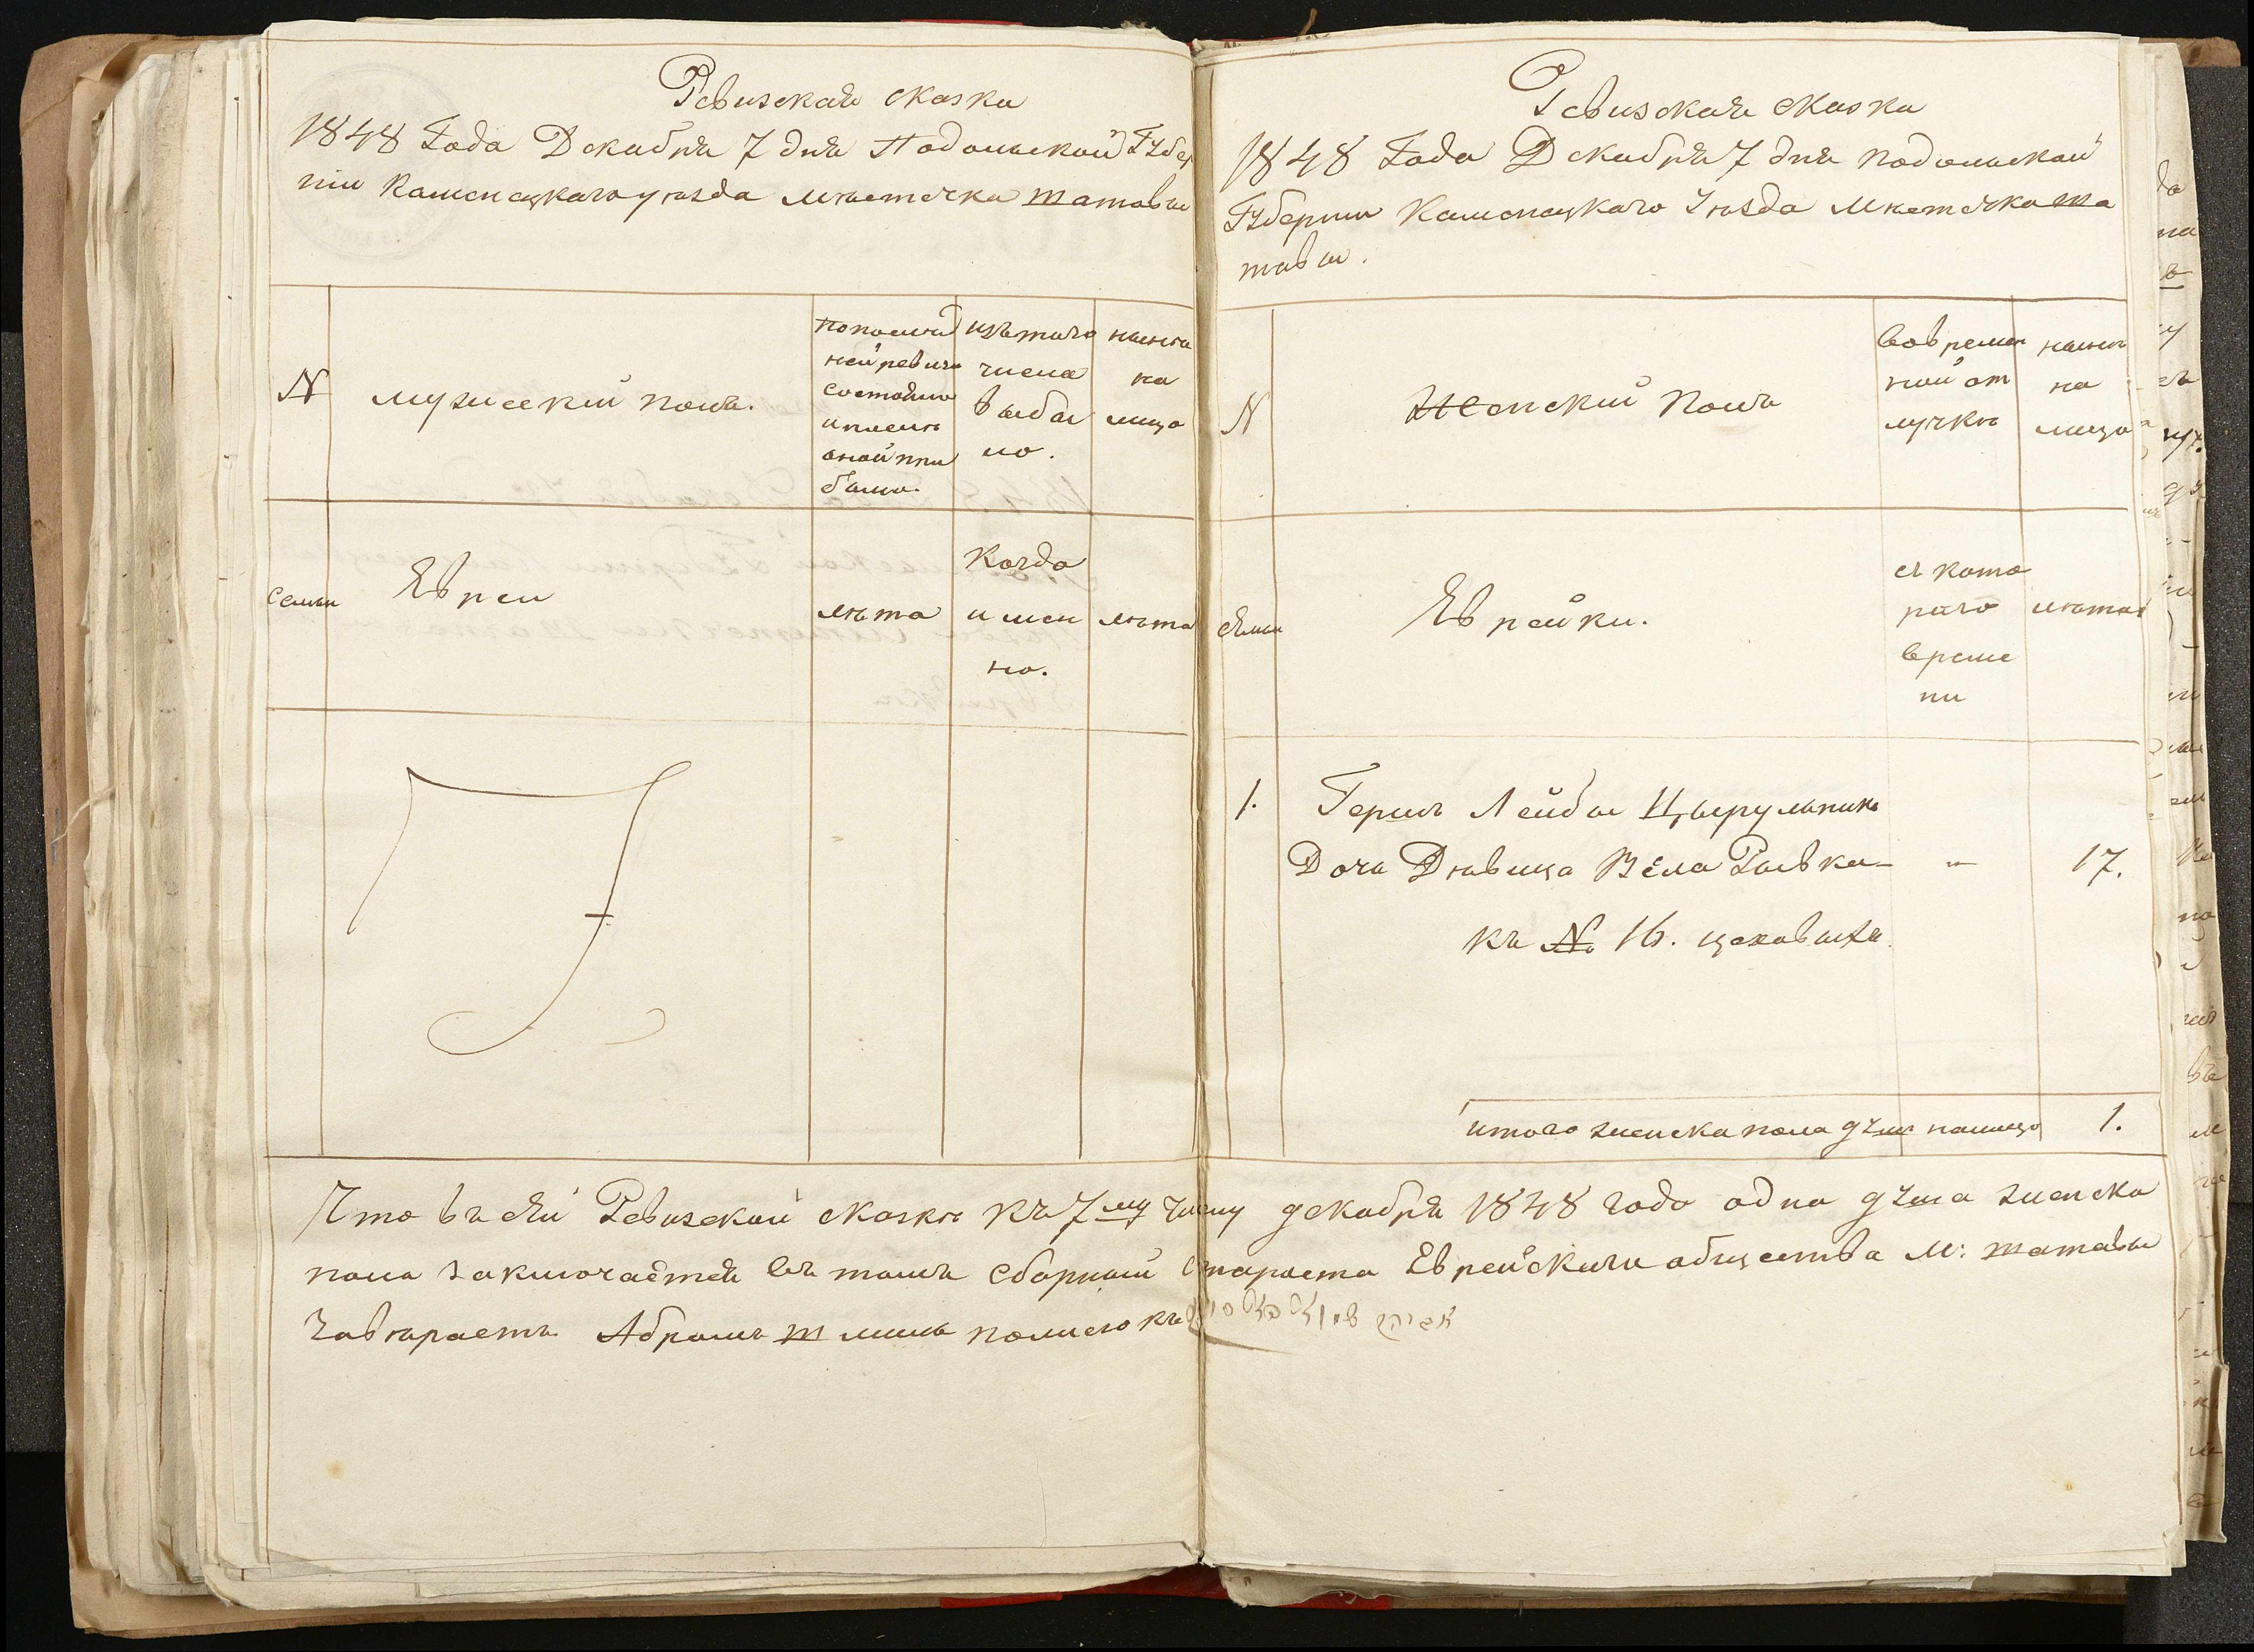 Ревизская сказка
1848 Года Декабря 7 дня Подольской Губер
нiи Каменецкаго уѣзда мѣстечка Шатавы
N
мужескiй полъ.
попослѣд
ней ревизи
состояло
ипослѣ
оной при
было.
изътого
числа
выбы
ло.
нынѣ
на
лицо
семьи
Евреи
лѣта
Когда
имен
но.
лѣта
Ревизская сказка
1848 Года Декабря 7 дня Подольской
Губернiи Каменецкаго Уѣзда Мѣстечка Ша
тавы.
N
Женскiй Полъ
вовремен
ной от
лучкѣ
нынѣ
на
лицо
семьи
Еврейки.
съ кото
раго
време
ни
лѣта
1. Гершъ Лейбы Цырульникъ
Дочь Дѣвица Бела Рывка - " 17.
къ № 16. цеховыхъ
итого женска пола душъ налицо 1.
Что въ сей Ревизской сказкѣ къ 7му числу декабря 1848 года одна душа женска
пола заключается въ томъ Сборный Староста Еврейскаго общества М: Шатавы
завѣраетъ Абрамъ